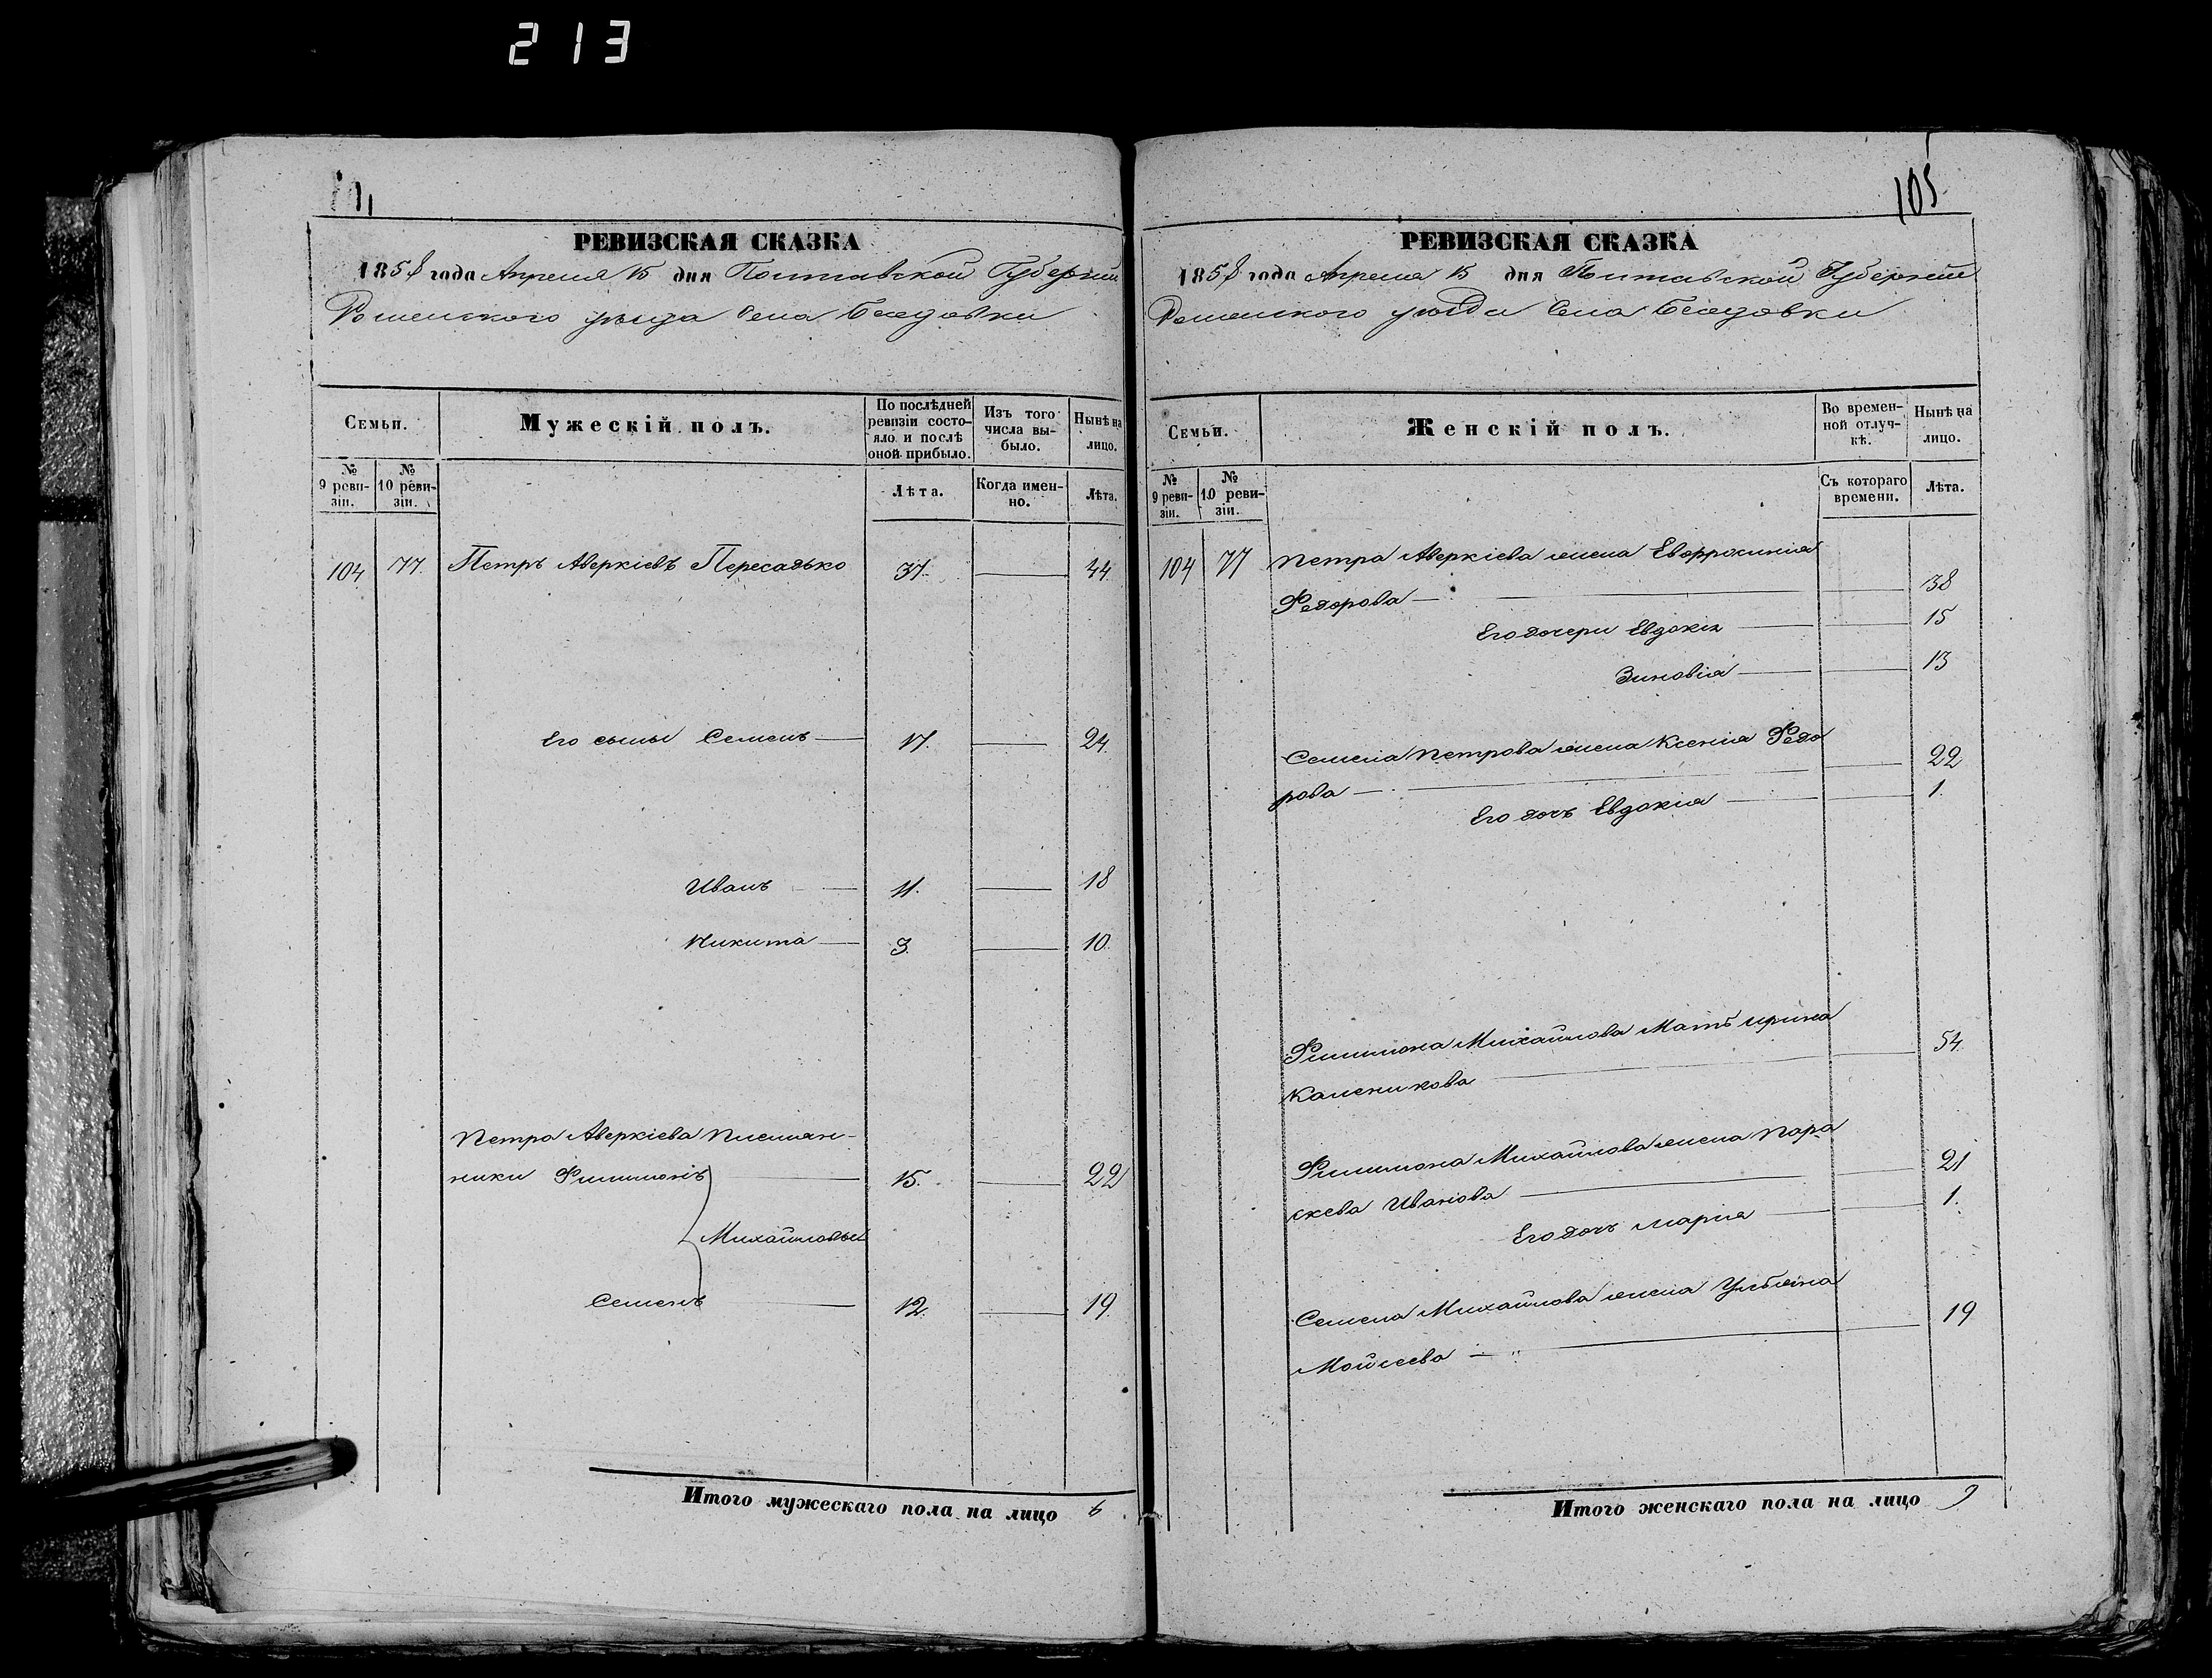 213
105
РЕВИЗСКАЯ СКАЗКА
1858 года Апреля 15 дня Полтавской Губерніи
Роменского уѣзда Села Беседовки
Семьи.
Мужескій полъ.
По послѣдней ревизіи состояло и послѣ оной прибыло.
Изъ того числа выбыло.
Нынѣ на лицо.
№ 9 ревизіи.
№ 10 ревизіи.
Лѣта.
Когда именно.
Лѣта.
104 77. Петръ Аверкіевъ Пересадько 37. 44.
Его сыны Семенъ 17. 24.
Иванъ 11. 18
Никита 3. 10.
Петра Аверкіева племян-
ники Филимонъ 15. 22
Михайловы
Семенъ 12. 19.
Итого мужескаго пола на лицо 6
РЕВИЗСКАЯ СКАЗКА
1858 года Апреля 15 дня Полтавской Губерніи
Роменского уѣзда Села Беседовки
Семьи.
Женскій полъ.
Во временной отлучкѣ.
Нынѣ на лицо.
№ 9 ревизіи.
№ 10 ревизіи.
Съ котораго времени.
Лѣта.
104 77 Петра Аверкіева жена Евфросинія
Федорова 38
Его дочери Евдокія 15
Зиновія 13
Семена Петрова жена Ксенія Федо
рова 22
Его дочь Евдокія 1.
Филимона Михайлова Мать Ирина
Каленикова 54.
Филимона Михайлова жена Пара
скева Иванова 21
Его дочь Марія 1.
Семена Михайлова жена Ульяна
Мойсеева 19
Итого женскаго пола на лицо 9